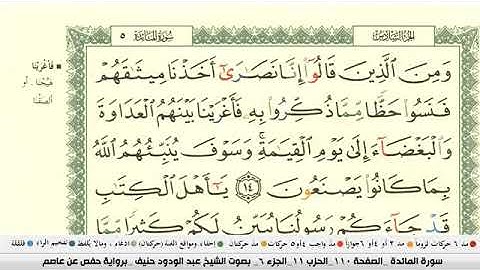 الجزء السادس
سورة المائدة ٥
وَمِنَ ٱلَّذِينَ قَالُوٓاْ إِنَّا نَصَٰرَىٰٓ أَخَذۡنَا مِيثَٰقَهُمۡ
فَنَسُواْ حَظّٗا مِّمَّا ذُكِّرُواْ بِهِۦ فَأَغۡرَيۡنَا بَيۡنَهُمُ ٱلۡعَدَاوَةَ
وَٱلۡبَغۡضَآءَ إِلَىٰ يَوۡمِ ٱلۡقِيَٰمَةِۚ وَسَوۡفَ يُنَبِّئُهُمُ ٱللَّهُ
بِمَا كَانُواْ يَصۡنَعُونَ ١٤ يَٰٓأَهۡلَ ٱلۡكِتَٰبِ
قَدۡ جَآءَكُمۡ رَسُولُنَا يُبَيِّنُ لَكُمۡ كَثِيرٗا مِّمَّا
فأغرينا
هيّجنا. أو
ألصقنا
مد ٦ حركات لزوما مد ٢ أو ٤ أو ٦ جوازا مد واجب ٤ أو ٥ حركات مد حركتان إخفاء، ومواقع الغنة (حركتان) ادغام، ومالا يلفظ تفخيم الراء قلقلة
سورة المائدة _الصفحة ١١٠_الحزب ١١_الجزء ٦_ بصوت الشيخ عبد الودود حنيف _برواية حفص عن عاصم